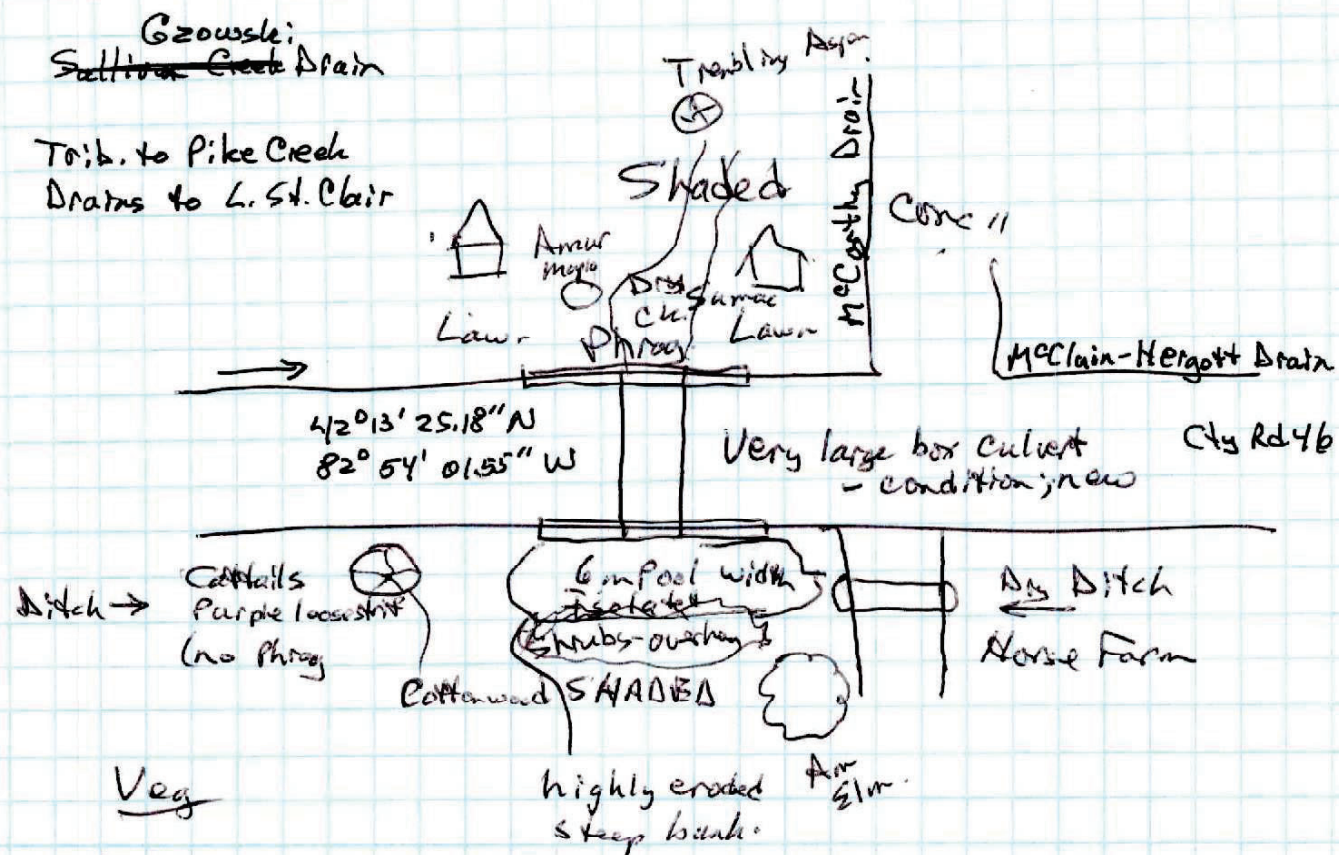 Gzowski
Sullivan Creek Drain
Trib. to Pike Creek
Drains to L. St. Clair
Trembling Aspen
Shaded
McCarthy Drain
Conc 11
Amur
maple
Dry
Ch.
Sumac
Lawn
Phrag
Lawn
McClain-Hergott Drain
42° 13' 25.18" N
82° 54' 01.55" W
Very large box culvert
- condition; new
Cty Rd 46
Ditch →
Cattails
Purple loosestrif
(no Phrag
6 m Pool width
Isolated
Shrubs-overhang
Cottonwood
SHADED
Dry Ditch
Horse Farm
Am
Elm.
highly eroded
steep bank.
Veg